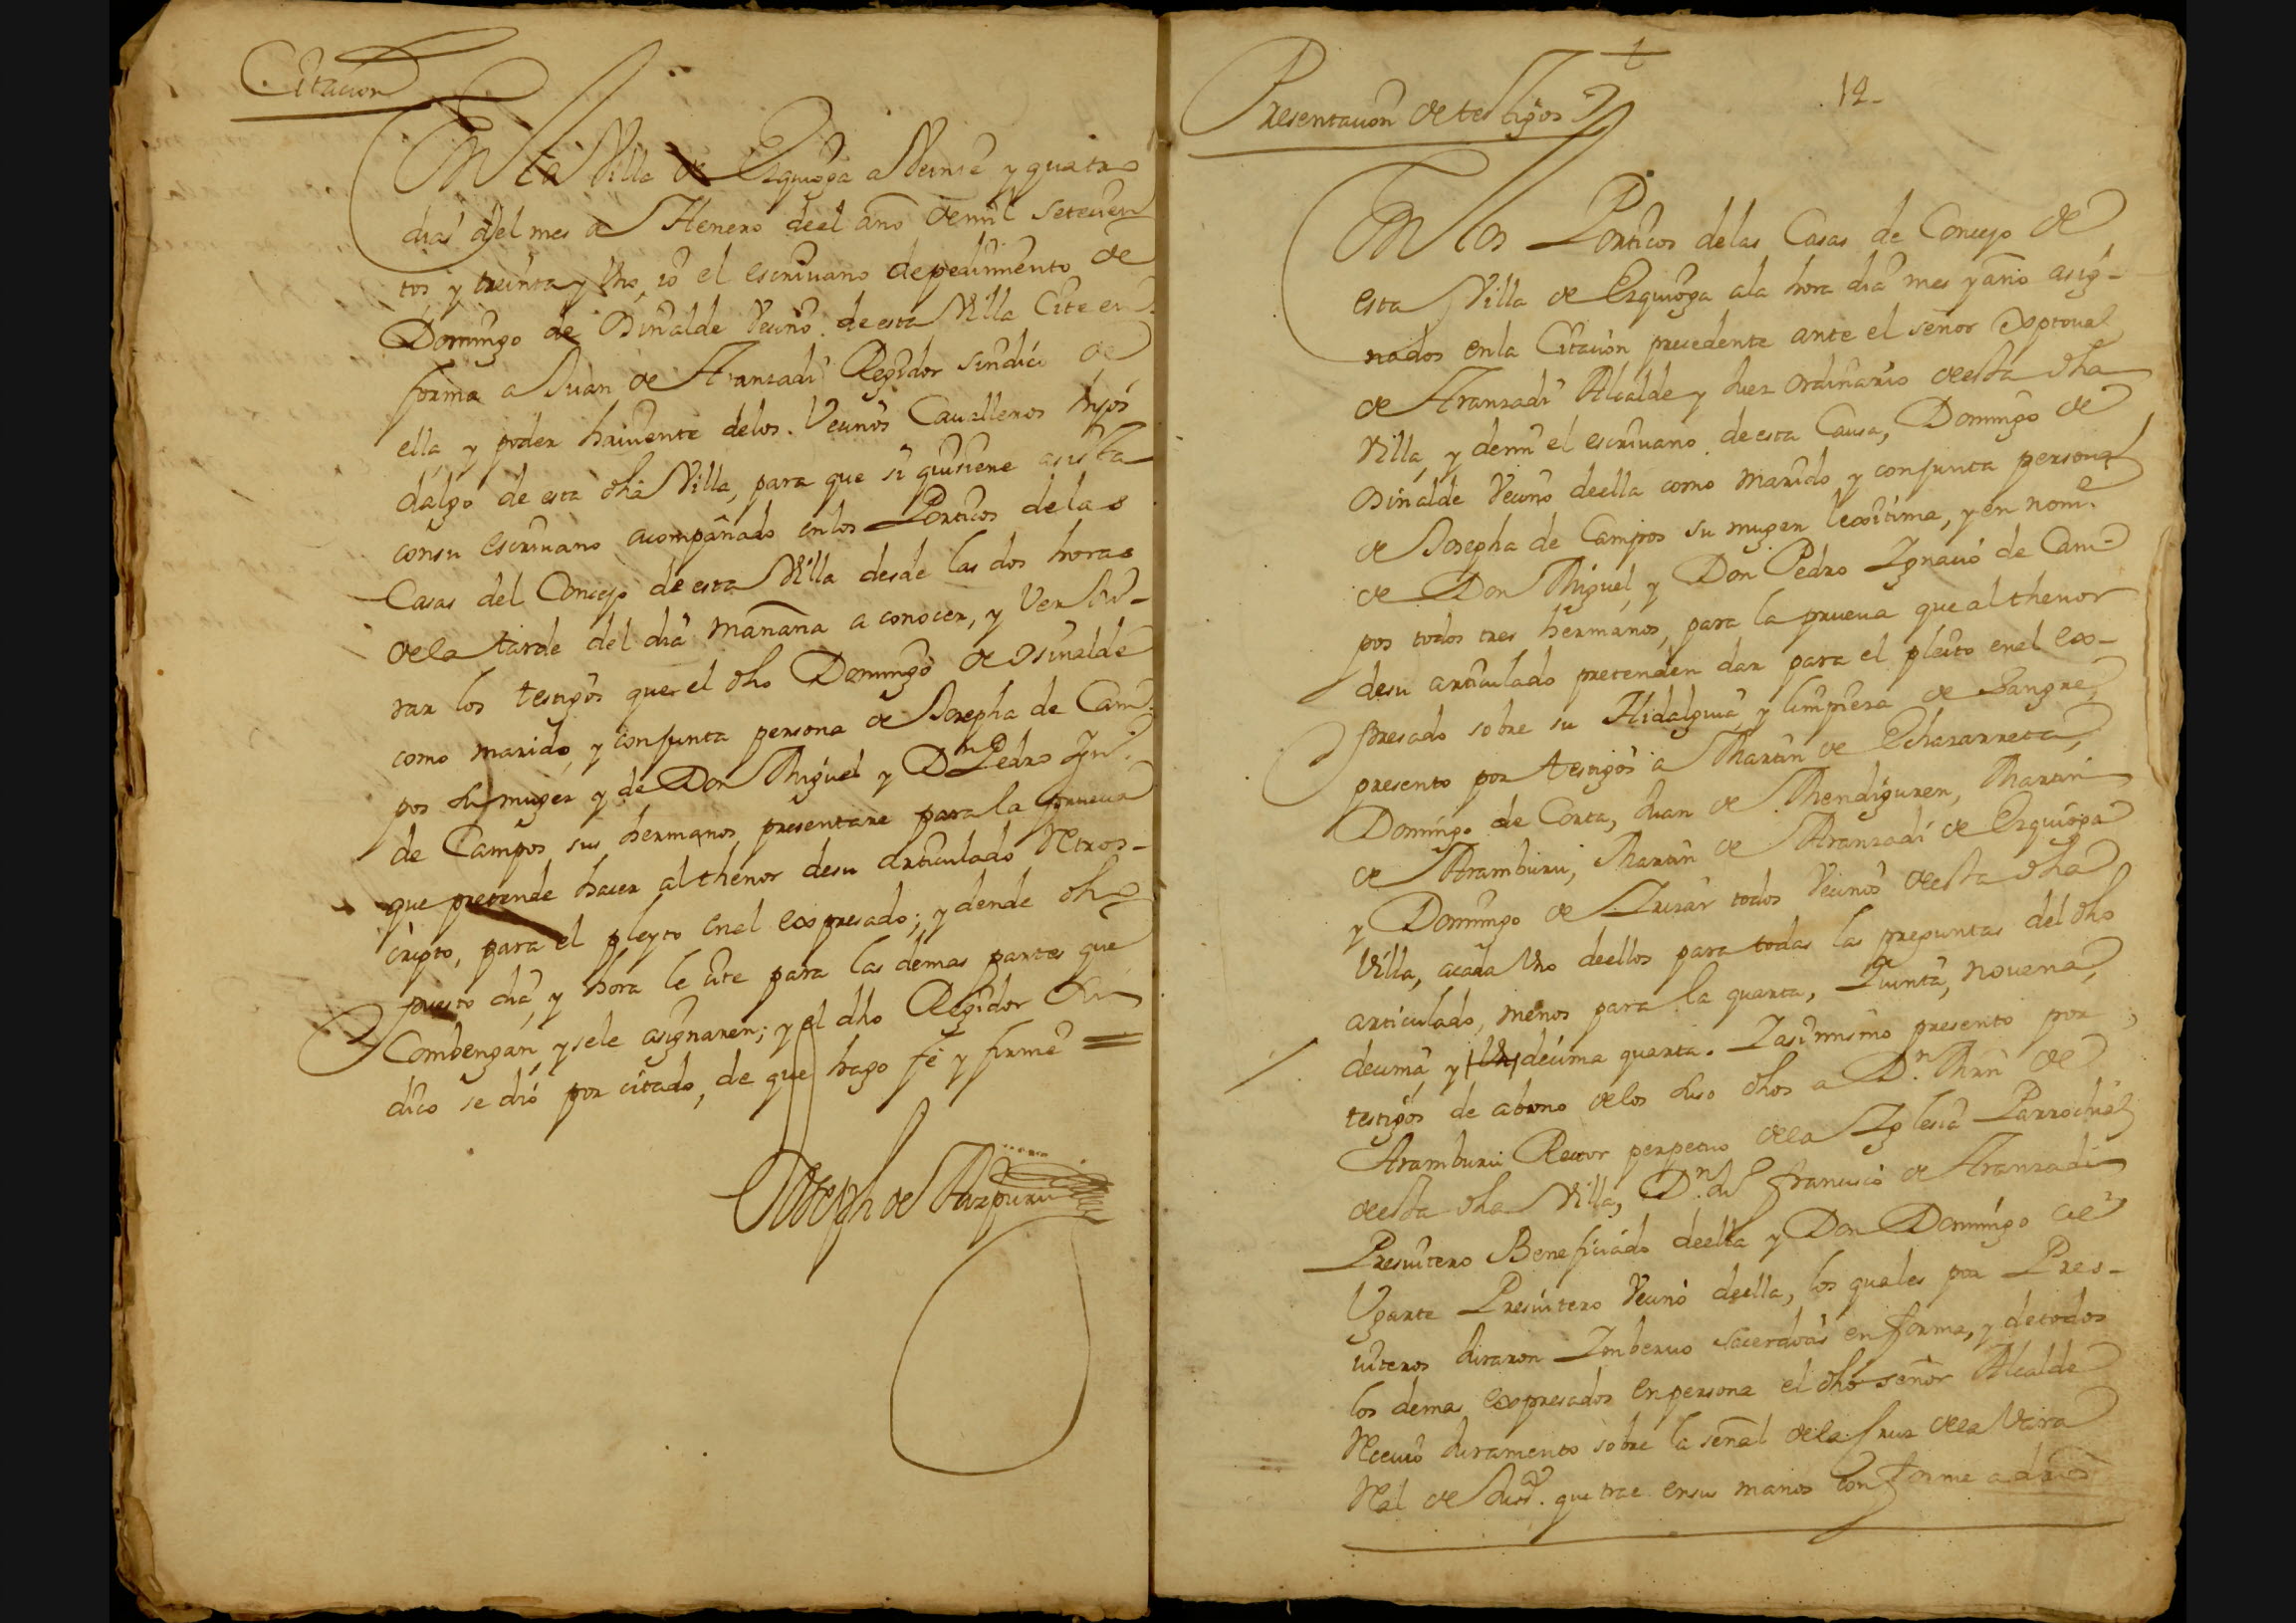 Citacion
En la Villa de Ezquioga a Veinte y quatro
dias del mes de Henero de el año de mil setecien
tos y treinta y Uno, io el escriuano de pedimento de
Domingo de Osinalde Vecino de esta Villa Cite en
forma a Juan de Aranzadi Regidor sindico de
ella, y poder haviente delos Vecinos Caualleros hijos
dalgo de esta dha Villa, para que si quisiere asista
consu escriuano acompañado en los Porticos de las
Casas del Concejo de esta Villa desde las dos horas
dela tarde del dia mañana a conocer, y Ver Ju-
rar los testigos que el dho Domingo de Osinalde
como marido, y conjunta persona de Josepha de Cam-
pos su muger y de Don Miguel y Dn Pedro Ign.º
de Campos sus hermanos presentare para la prueua
que pretende hacer al thenor desu articulado Retros-
cripto, para el pleyto en el expresado; y dende dho
puesto dia, y hora le cite para las demas partes que
Combengan, y sele asignaren; y el dho Regidor Sin
dico se dió por citado, de que hago fe y firmé =
Joseph de Aizpuru
Presentacion de testigos
12-
En los Porticos delas Casas de Concejo de
esta Villa de Ezquioga ala hora dia mes y año asig-
nados enla Citacion precedente ante el señor Xptoual
de Aranzadi Alcalde y Juez ordinario de esta dha
Villa, y demi el escriuano de esta Causa, Domingo de
Osinalde Vecino deella como marido y conjunta persona
de Josepha de Campos su muger lexitima, y en nom.e
de Don Miguel, y Don Pedro Ignacio de Cam-
pos todos tres hermanos, para la prueua que al thenor
desu articulado pretenden dar para el pleito enel ex-
presado sobre su Hidalguia, y limpieza de Sangre,
presento por testigos a Martin de Echazarreta,
Domingo de Corta, Juan de Mendiguren, Martin
de Aramburu, Martin de Aranzadi de Ezquioga
y Domingo de Luzar todos Vecinos de esta dha
Villa, acada Uno deellos para todas las preguntas del dho
articulado, menos para la quarta, Quinta, novena,
decima y decima quarta. Y asimismo presento por
testigos de abono delos suso dhos a D.n Mrn de
Aramburu Rector perpetuo dela Iglesia Parrochial
de esta dha Villa, D.n Jph francisco de Aranzadi
Presuitero Beneficiado deella y Don Domingo de
Ugarte Presuitero Vecino deella, los quales por Pres-
uiteros Juraron Inberuo sacerdotis en forma, y detodos
los demas expresados en persona el dho señor Alcalde
Receuio Juramento sobre la señal dela Cruz dela Vara
Real de Just.a que trae ensus manos conforme a dro